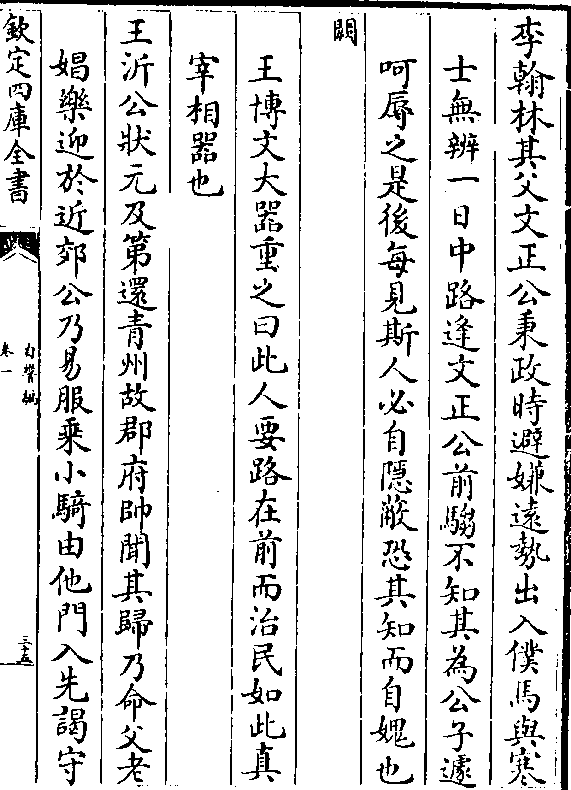 李翰林其父文正公秉政時避嫌遠勢出入僕馬與寒
士無辨一日中路逢文正公前騶不知其為公子遽
呵辱之是後每見斯人必自隱蔽恐其知而自媿也
闕
王博文大器重之曰此人要路在前而治民如此真
宰相器也
王沂公狀元及第還青州故郡府帥聞其歸乃命父老
娼樂迎於近郊公乃易服乘小騎由他門入先謁守
欽定四庫全書
自警編
卷一
三十五